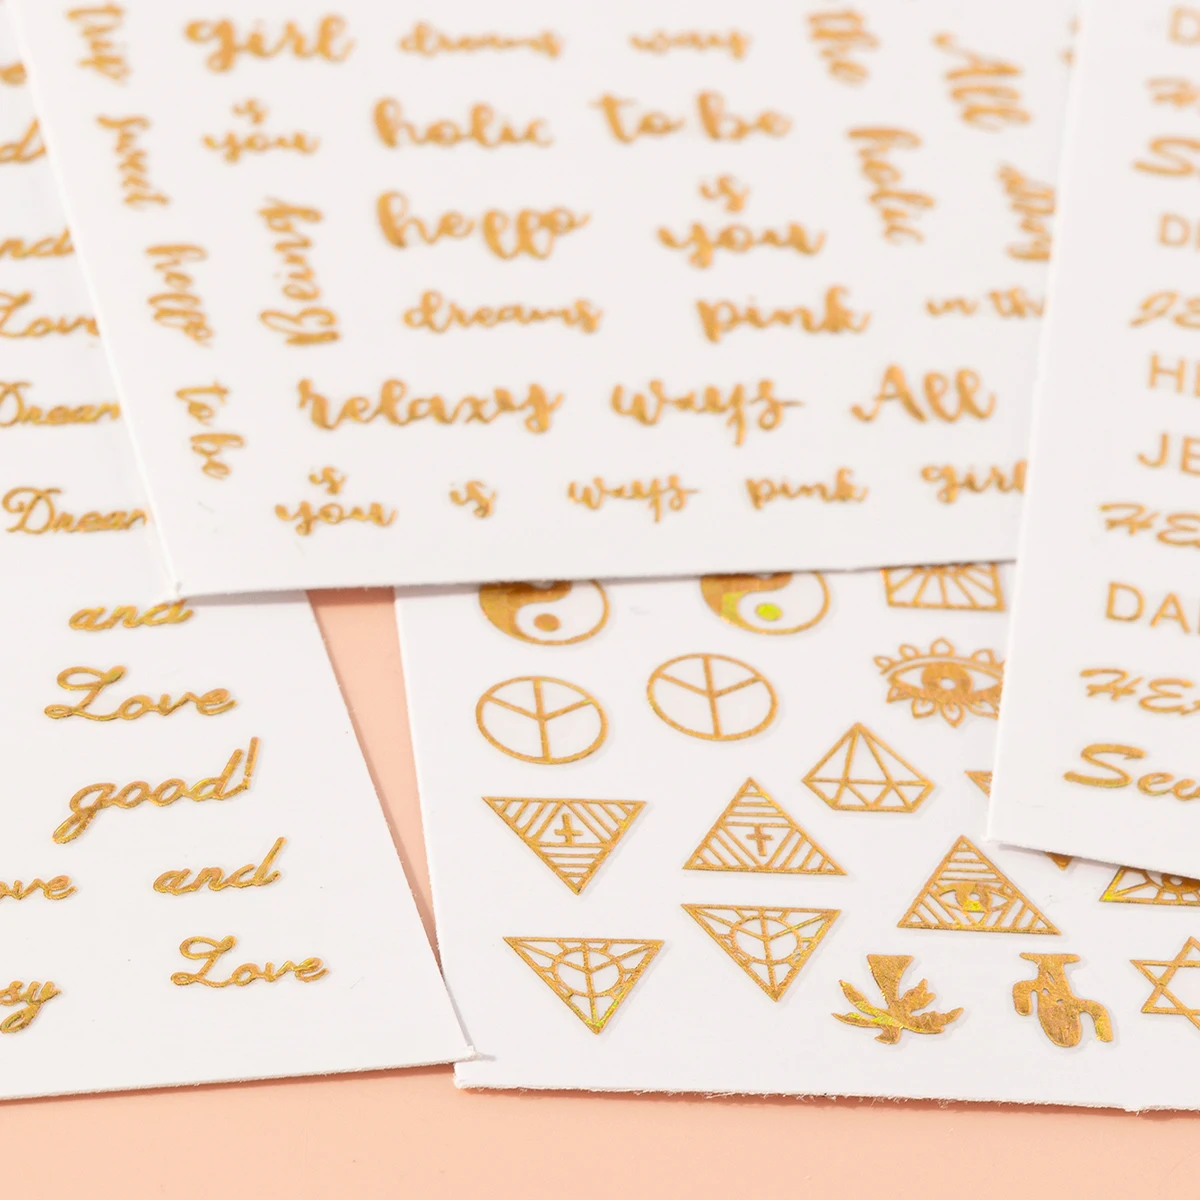 trip
girl
dreams
ways
the
All
sweet
is
you
holic
to be
holic
hello
Being
hello
is
you
dreams
pink
in th
to be
relaxy
ways
All
is
you
is
ways
pink
girl
and
Love
Drean
Drean
and
Love
good!
ove
and
sy
Love
HE
JE
HE
DA
HE
See